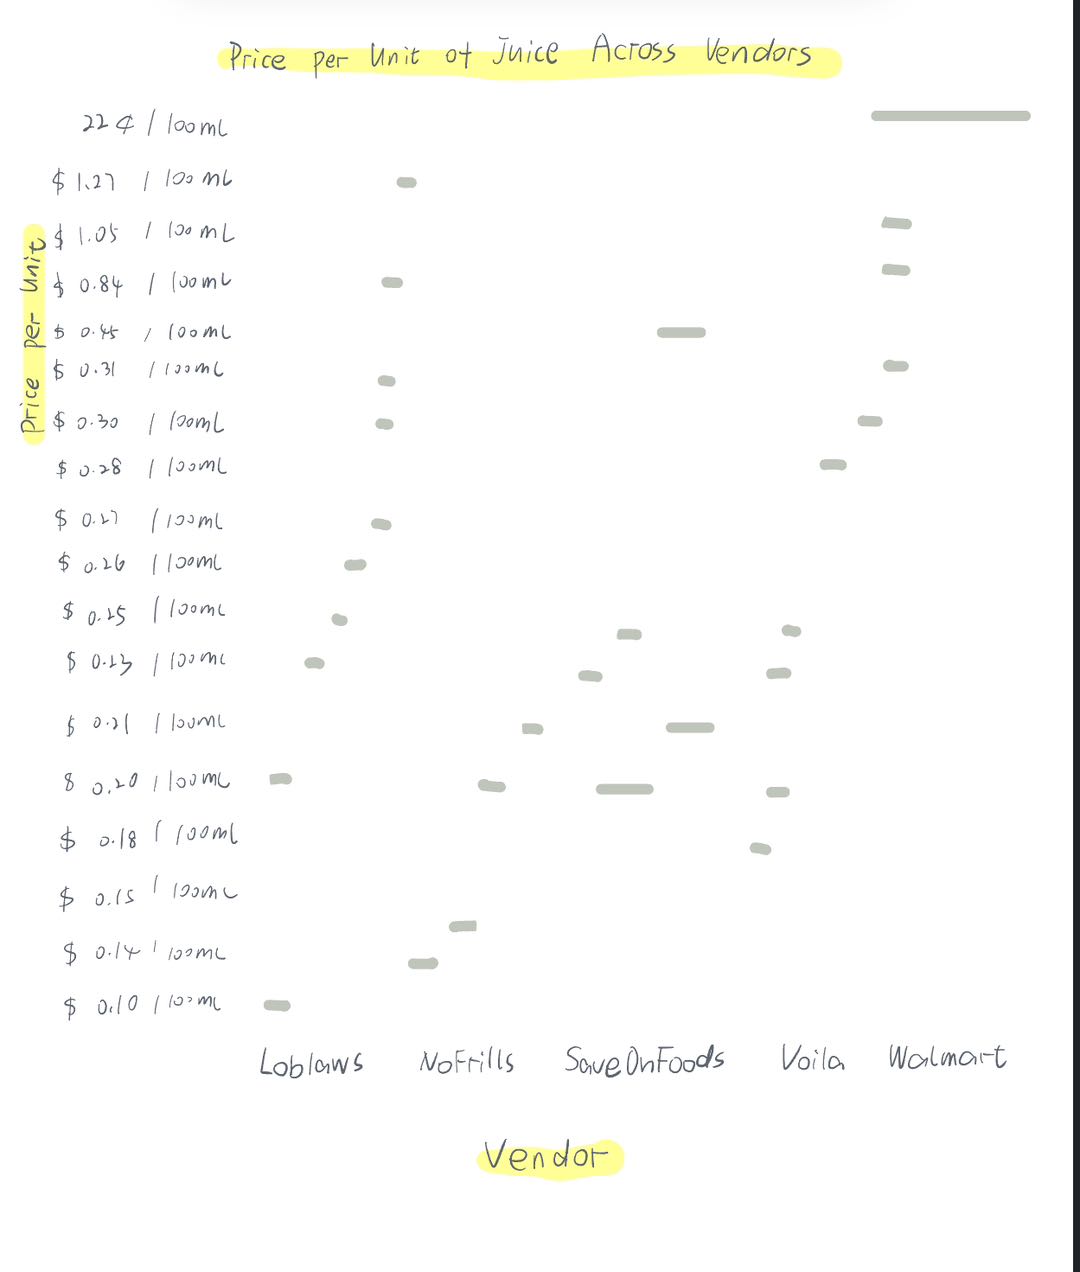 Price per Unit of Juice Across Vendors
22¢ / 100mL
$ 1.27 / 100 mL
$ 1.05 / 100 mL
$ 0.84 / 100mL
$ 0.45 / 100mL
$ 0.31 / 100mL
$ 0.30 / 100mL
$ 0.28 / 100mL
$ 0.27 / 100mL
$ 0.26 / 100mL
$ 0.25 / 100mL
$ 0.23 / 100mL
$ 0.21 / 100mL
$ 0.20 / 100mL
$ 0.18 / 100mL
$ 0.15 / 100mL
$ 0.14 / 100mL
$ 0.10 / 100mL
Price per Unit
Loblaws NoFrills SaveOnFoods Voila Walmart
Vendor